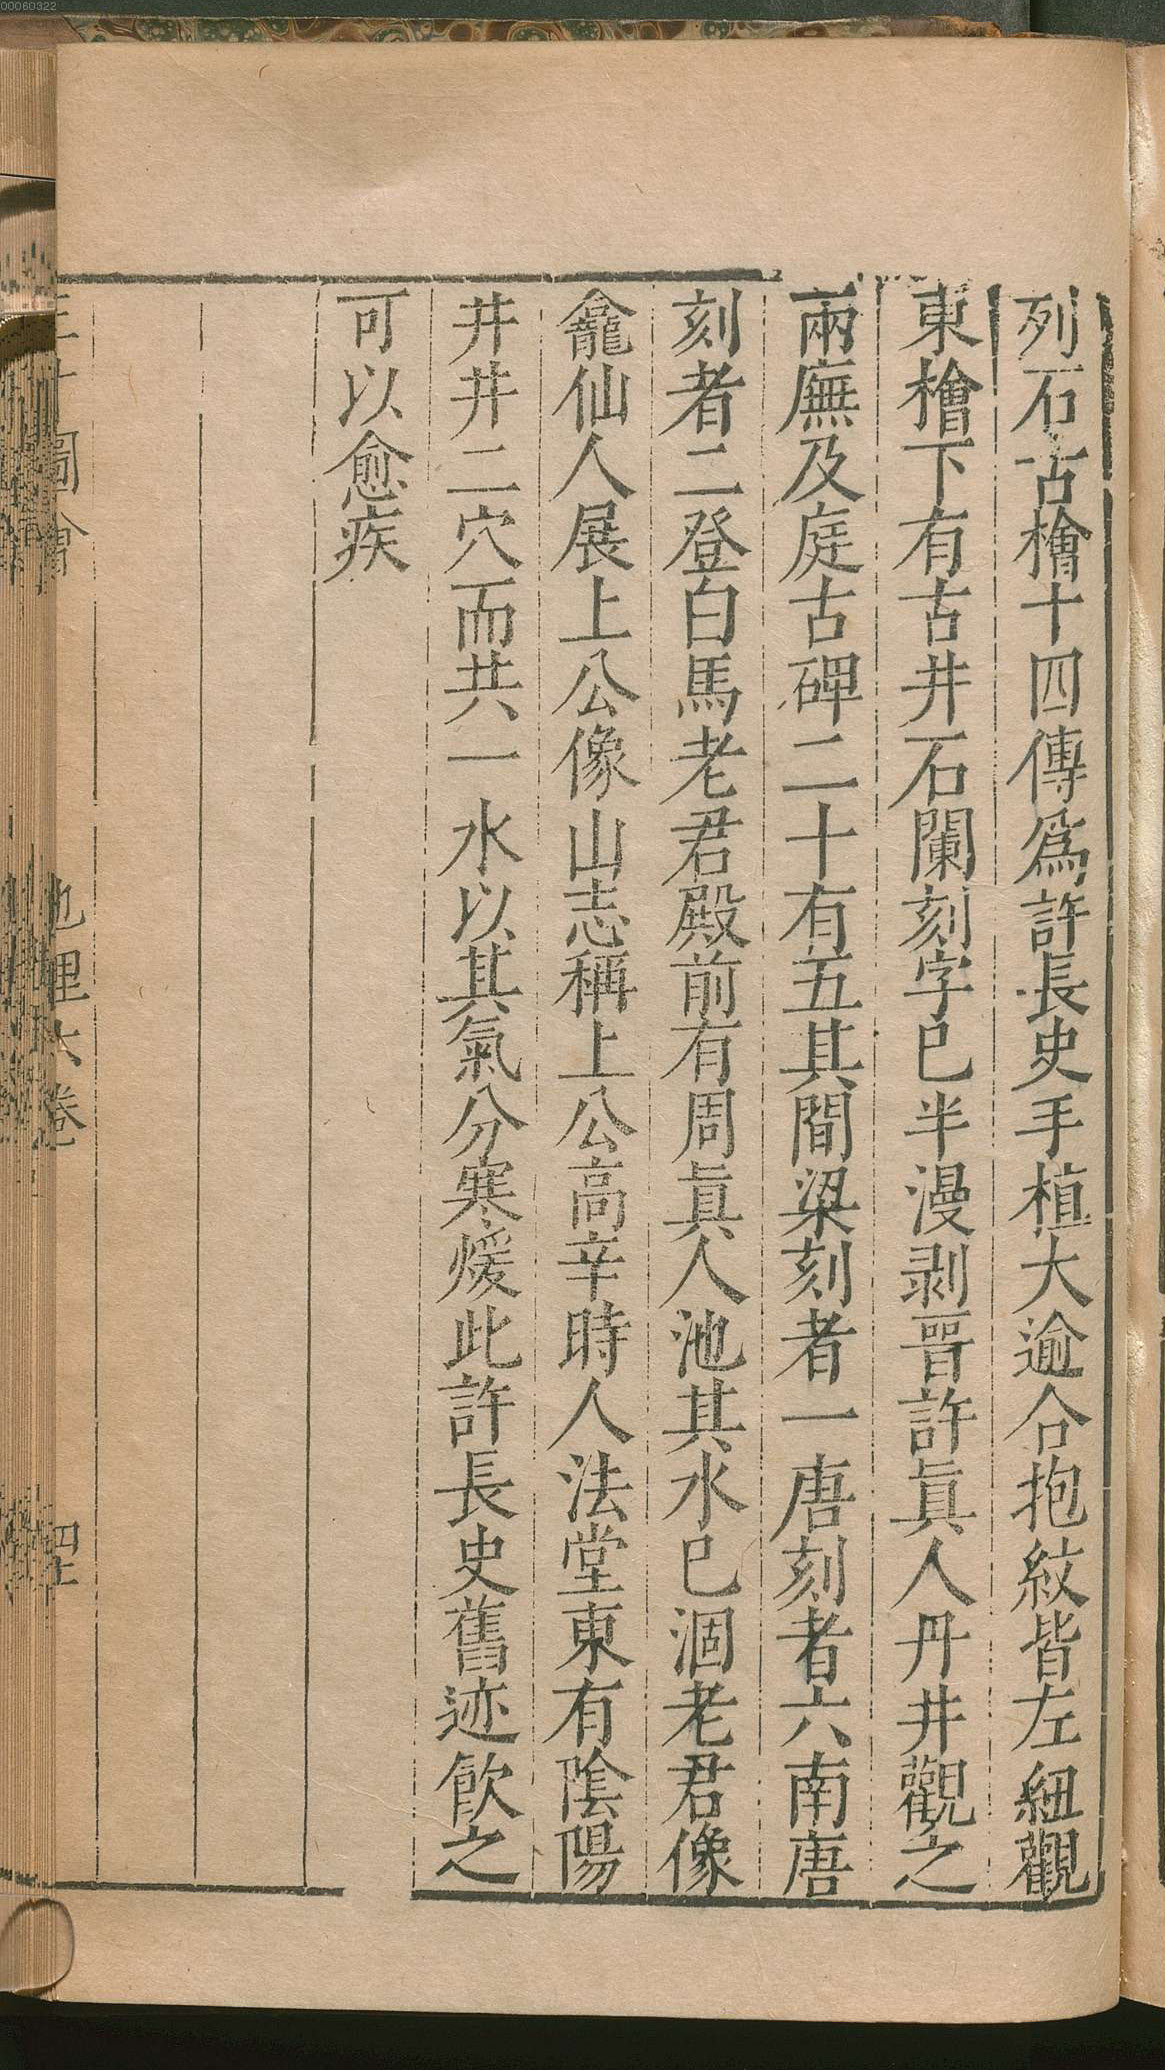 列石古檜十四傳爲許長史手植大逾合抱紋皆左紐觀
東檜下有古井石闌刻字已半漫剥晉許眞人丹井觀之
兩廡及庭古碑二十有五其間梁刻者一唐刻者六南唐
刻者二登白馬老君殿前有周眞人池其水已涸老君像
龕仙人展上公像山志稱上公高辛時人法堂東有陰陽
井井二穴而共一水以其氣分寒煖此許長史舊迹飲之
可以愈疾
圖會
地理六卷
00060322